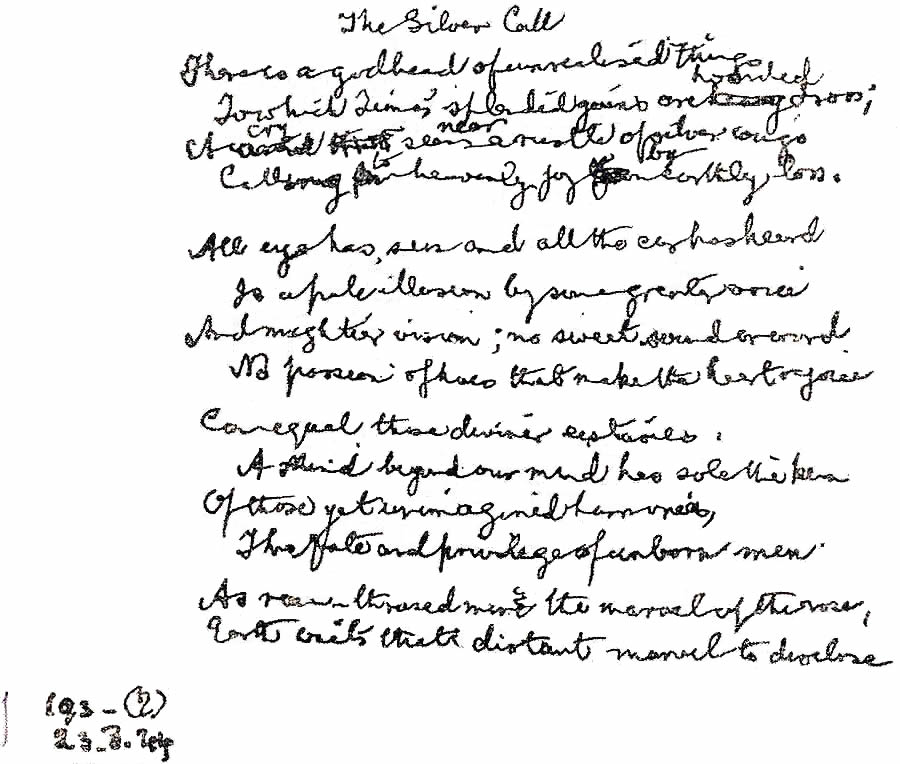 The Silver Call
There is a godhead of unrealised things
To which Time's splendid gains are hoarded dross;
A cry seems near a rustle of silver wings
Calling to heavenly joy by earthly loss.
All eye has seen and all the ear has heard
Is a pale illusion by some greater voice
And mightier vision; no sweet sound or word
No passion of hues that make the heart rejoice
Can equal those diviner ecstasies.
A Mind beyond our mind has sole the ken
Of those yet unimagined harmonies,
The fate and privilege of unborn men.
As rain-thrashed mire the marvel of the rose,
Earth waits that distant marvel to disclose
193-(?)
23.3.44